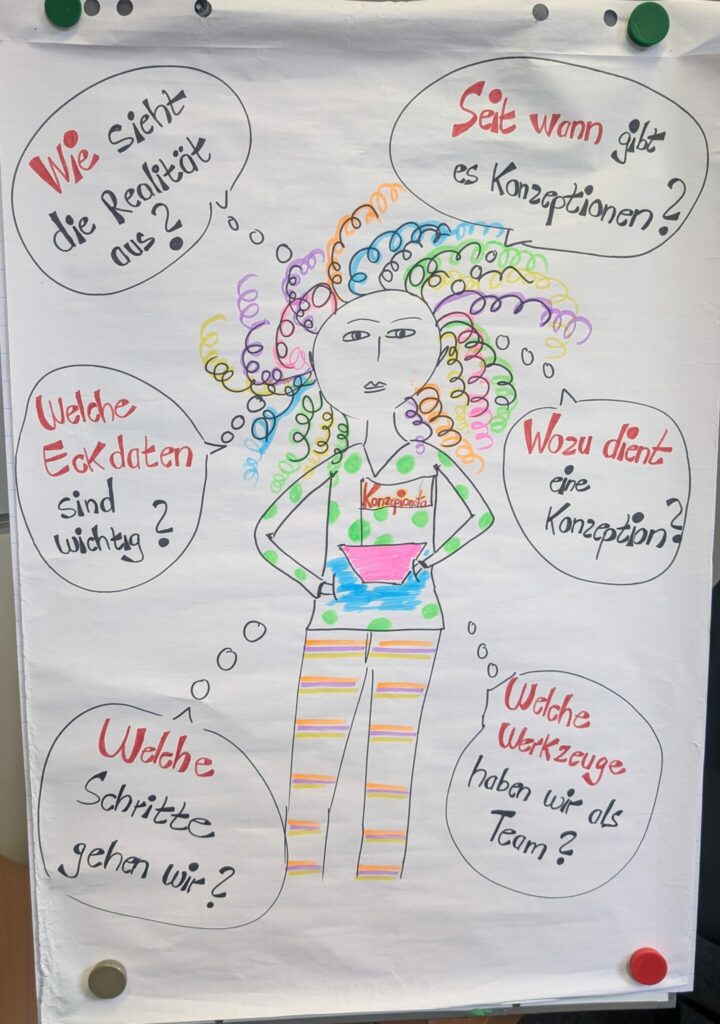 Wie sieht
die Realität
aus?
Seit wann gibt
es Konzeptionen?
Welche
Eckdaten
sind
wichtig?
Wozu dient
eine
Konzeption?
Konzepionsta
Welche
Schritte
gehen wir?
Welche
Werkzeuge
haben wir als
Team?